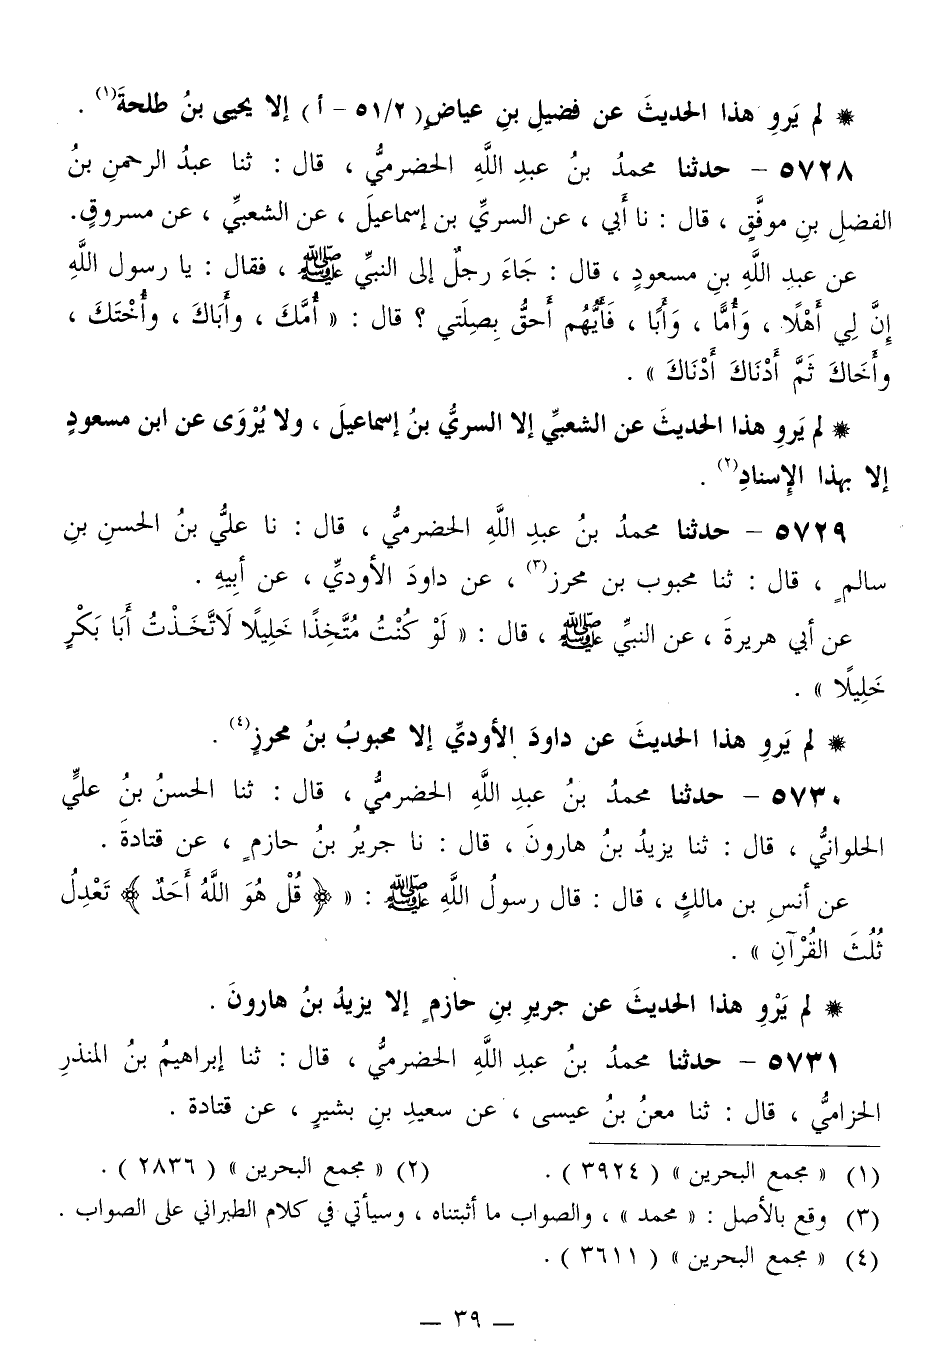 * لم يَروِ هذا الحديثَ عن فضيلِ بنِ عياضٍ( ٥١/٢ - أ ) إلا يحيى بنُ طلحةَ(١) .
٥٧٢٨ - حدثنا محمدُ بنُ عبدِ اللَّهِ الحضرميُّ ، قال : ثنا عبدُ الرحمنِ بنُ
الفضلِ بنِ موفَّقٍ ، قال : نا أَبي ، عن السريِّ بن إسماعيلَ ، عن الشعبيِّ ، عن مسروقٍ.
عن عبدِ اللَّهِ بنِ مسعودٍ ، قال : جَاءَ رجلٌ إلى النبيِّ ﷺ ، فقال : يا رسول اللَّهِ
إِنَّ لِي أَهْلًا ، وَأُمًّا ، وَأَبًا ، فَأَيُّهُم أَحقُّ بِصِلَتي ؟ قال : « أُمَّكَ ، وأَبَاكَ ، وأُخْتَكَ ،
وأَخَاكَ ثَمَّ أَدْنَاكَ أَدْنَاكَ » .
* لم يَروِ هذا الحديثَ عن الشعبيِّ إلا السريُّ بنُ إسماعيلَ ، ولا يُرْوَى عن ابن مسعودٍ
إلا بهذا الإِسنادِ(٢) .
٥٧٢٩ - حدثنا محمدُ بنُ عبدِ اللَّهِ الحضرميُّ ، قال : نا عليُّ بنُ الحسنِ بنِ
سالمٍ ، قال : ثنا محبوب بن محرز(٣) ، عن داودَ الأوديِّ ، عن أَبِيهِ .
عن أبي هريرةَ ، عن النبيِّ ﷺ ، قال : « لَوْ كُنْتُ مُتَّخِذًا خَلِيلًا لَاتَّخَذْتُ أَبَا بَكْرٍ
خَلِيلًا » .
* لم يَروِ هذا الحديثَ عن داودَ الأوديِّ إلا محبوبُ بنُ محرزٍ(٤) .
٥٧٣٠ - حدثنا محمدُ بنُ عبدِ اللَّهِ الحضرميُّ ، قال : ثنا الحسنُ بنُ عليٍّ
الحلوانيُّ ، قال : ثنا يزيدُ بنُ هارونَ ، قال : نا جريرُ بنُ حازمٍ ، عن قتادةَ .
عن أنسِ بن مالكٍ ، قال : قال رسولُ اللَّهِ ﷺ : « ﴿ قُلْ هُوَ اللَّهُ أَحَدٌ ﴾ تَعْدِلُ
ثُلُثَ القُرْآنِ » .
* لم يَرْوِ هذا الحديثَ عن جريرِ بنِ حازمٍ إلا يزيدُ بنُ هارونَ .
٥٧٣١ - حدثنا محمدُ بنُ عبدِ اللَّهِ الحضرميُّ ، قال : ثنا إبراهيمُ بنُ المنذرِ
الحزاميُّ ، قال : ثنا معنُ بنُ عيسى ، عن سعيدِ بنِ بشيرٍ ، عن قتادة .
(١) « مجمع البحرين » ( ٣٩٢٤ ) . (٢) « مجمع البحرين » ( ٢٨٣٦ ) .
(٣) وقع بالأصل : « محمد » ، والصواب ما أثبتناه ، وسيأتي في كلام الطبراني على الصواب .
(٤) « مجمع البحرين » ( ٣٦١١ ) .
— ٣٩ —